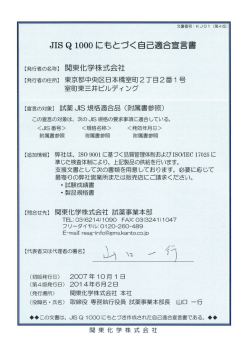 文書番号:KJ01(第4版)
JIS Q 1000 にもとづく自己適合宣言書
【発行者の名称】 関東化学株式会社
【発行者の住所】 東京都中央区日本橋室町2丁目2番1号
室町東三井ビルディング
【宣言の対象】 試薬 JIS 規格適合品(附属書参照)
この宣言の対象は、次の JIS 規格の要求事項に適合している。
<JIS 番号> <規格名称> <発効年月日>
附属書参照 附属書参照 附属書参照
【追加情報】 弊社は、ISO 9001 に基づく品質管理体制および ISO/IEC 17025 に
準じた管理体制により、上記製品の供給を行います。
支援文書として次の書類を用意しております。必要に応じて
最寄りの弊社営業所または販売店にご請求ください。
・試験成績書
・製品規格書
【問合せ先】 関東化学株式会社 試薬事業本部
TEL 03(6214)1090 FAX 03(3241)1047
フリーダイヤル 0120-260-489
E-mail reag-info@gms.kanto.co.jp
【代表者又は代理者の署名】
山口一行
(初版発行日) 2007年10月1日
(第四版発行日) 2014年6月2日
(発行場所) 関東化学株式会社 本社
(役職名・氏名) 取締役 専務執行役員 試薬事業本部長 山口 一行
◆◆この文書は、JIS Q 1000 にもとづき作成された自己適合宣言書である。◆◆
関東化学株式会社